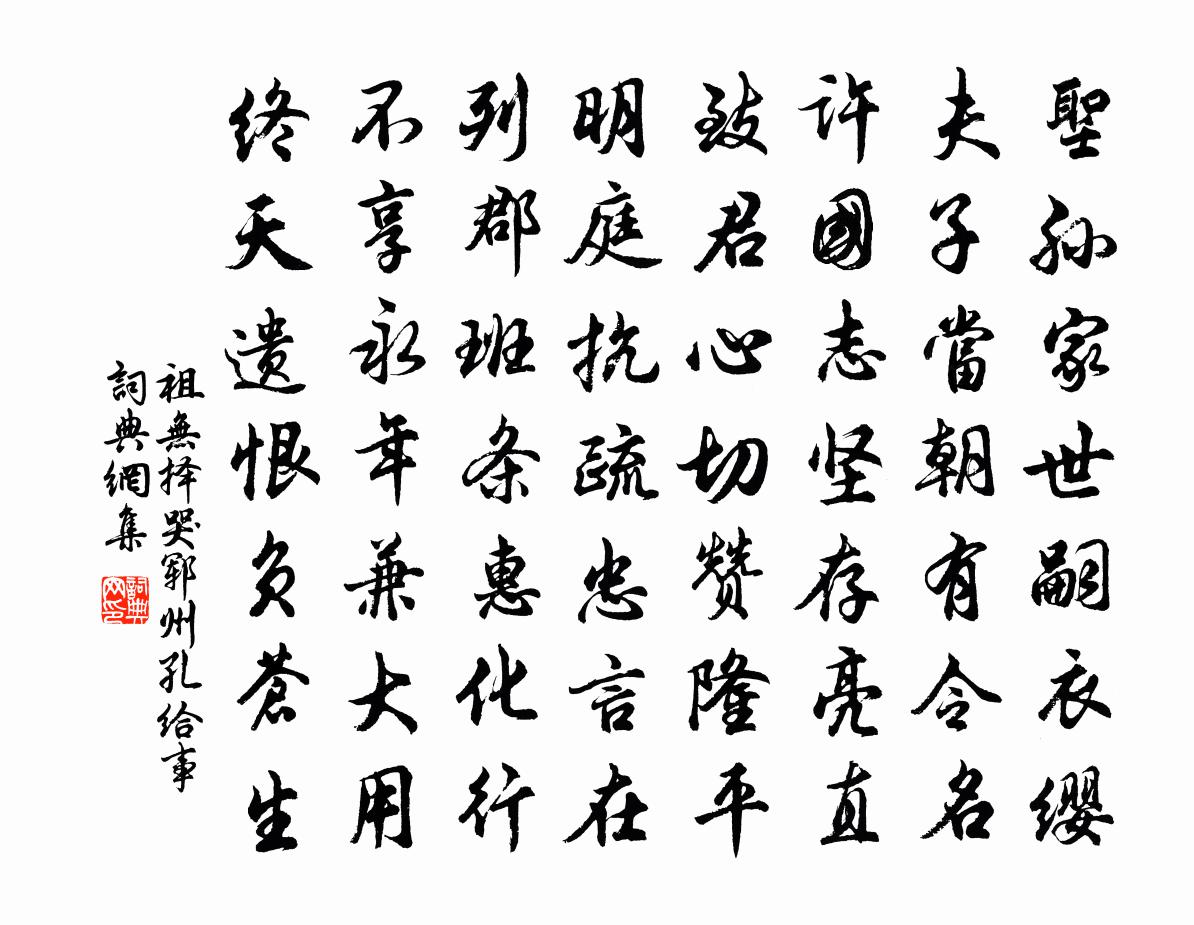 聖孙家世嗣衣缨
夫子當朝有令名
許國志坚存亮直
致君心切赞隆平
明庭抗疏忠言在
列郡班条惠化行
不享永年兼大用
终天遗恨负蒼生
祖無择哭郓州孔给事
詞典網集
詞典网印